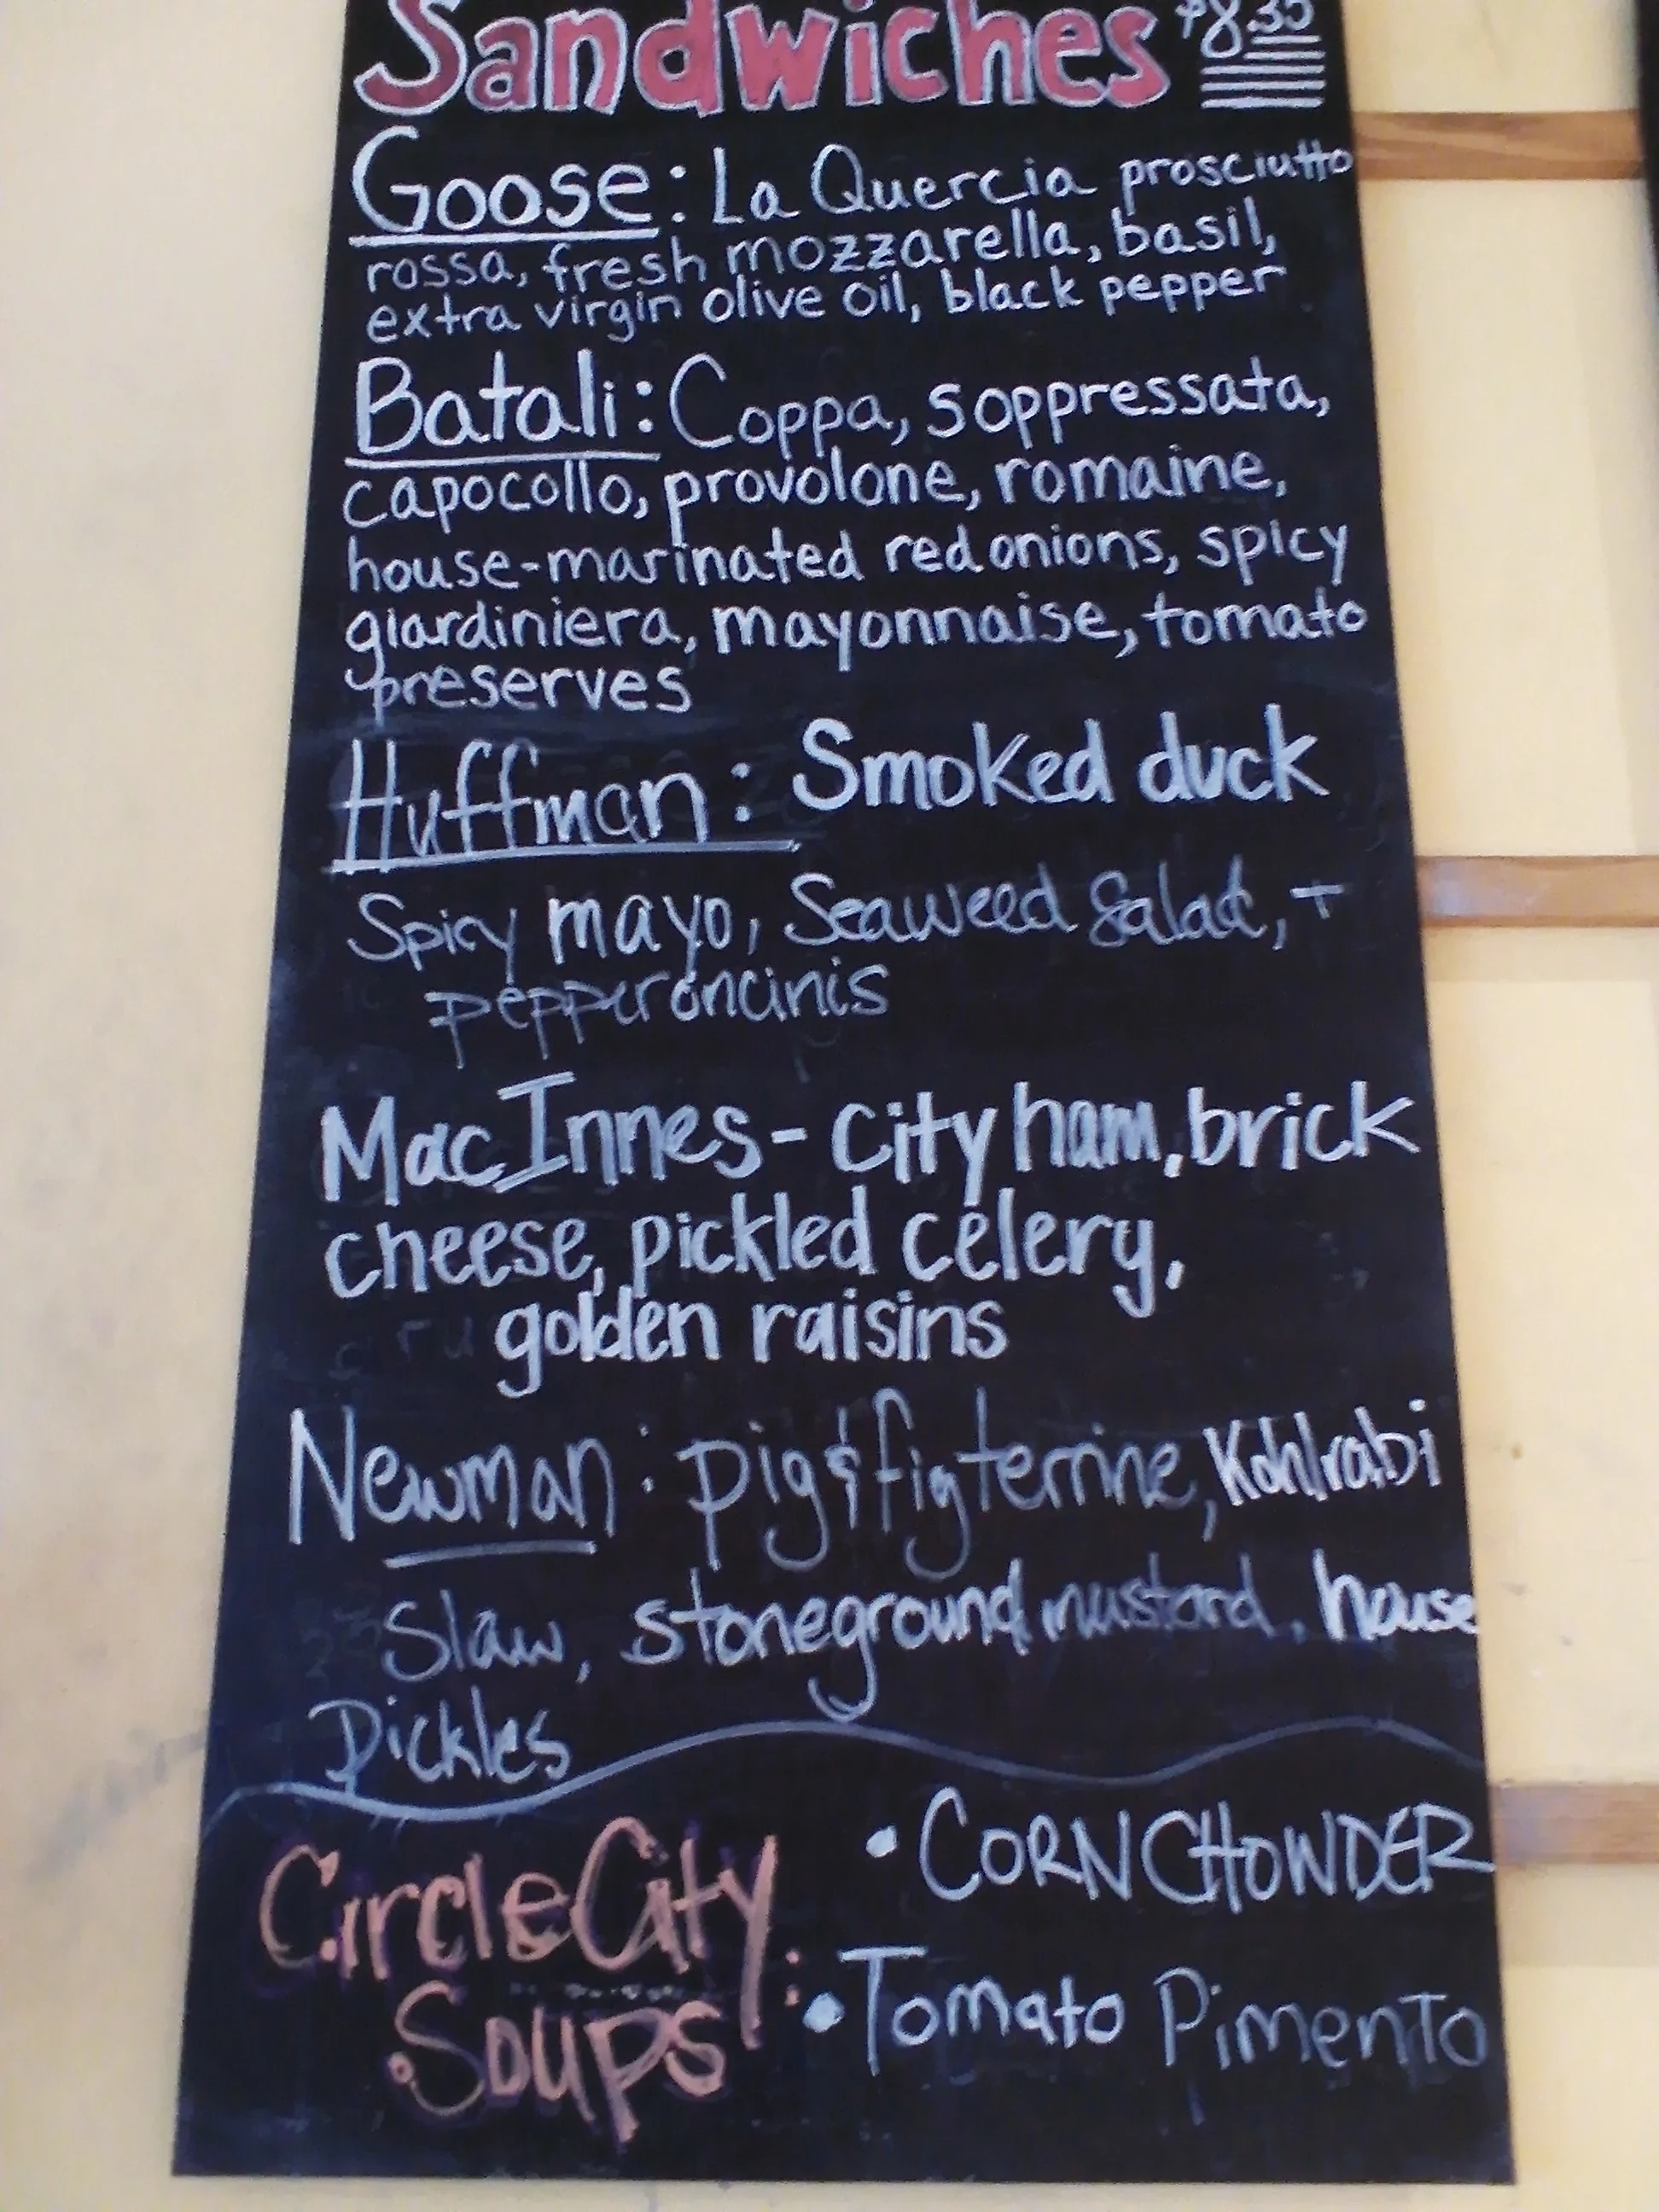 Sandwiches $8.35
Goose: La Quercia prosciutto
rossa, fresh mozzarella, basil,
extra virgin olive oil, black pepper
Batali: Coppa, soppressata,
capocollo, provolone, romaine,
house-marinated red onions, spicy
giardiniera, mayonnaise, tomato
preserves
Huffman: Smoked duck
Spicy mayo, Seaweed Salad, +
pepperoncinis
MacInnes- city ham, brick
cheese, pickled celery,
golden raisins
Newman: pig & fig terrine, Kohlrabi
Slaw, stoneground mustard, house
Pickles
Circle City
Soups:
• CORN CHOWDER
• Tomato Pimento